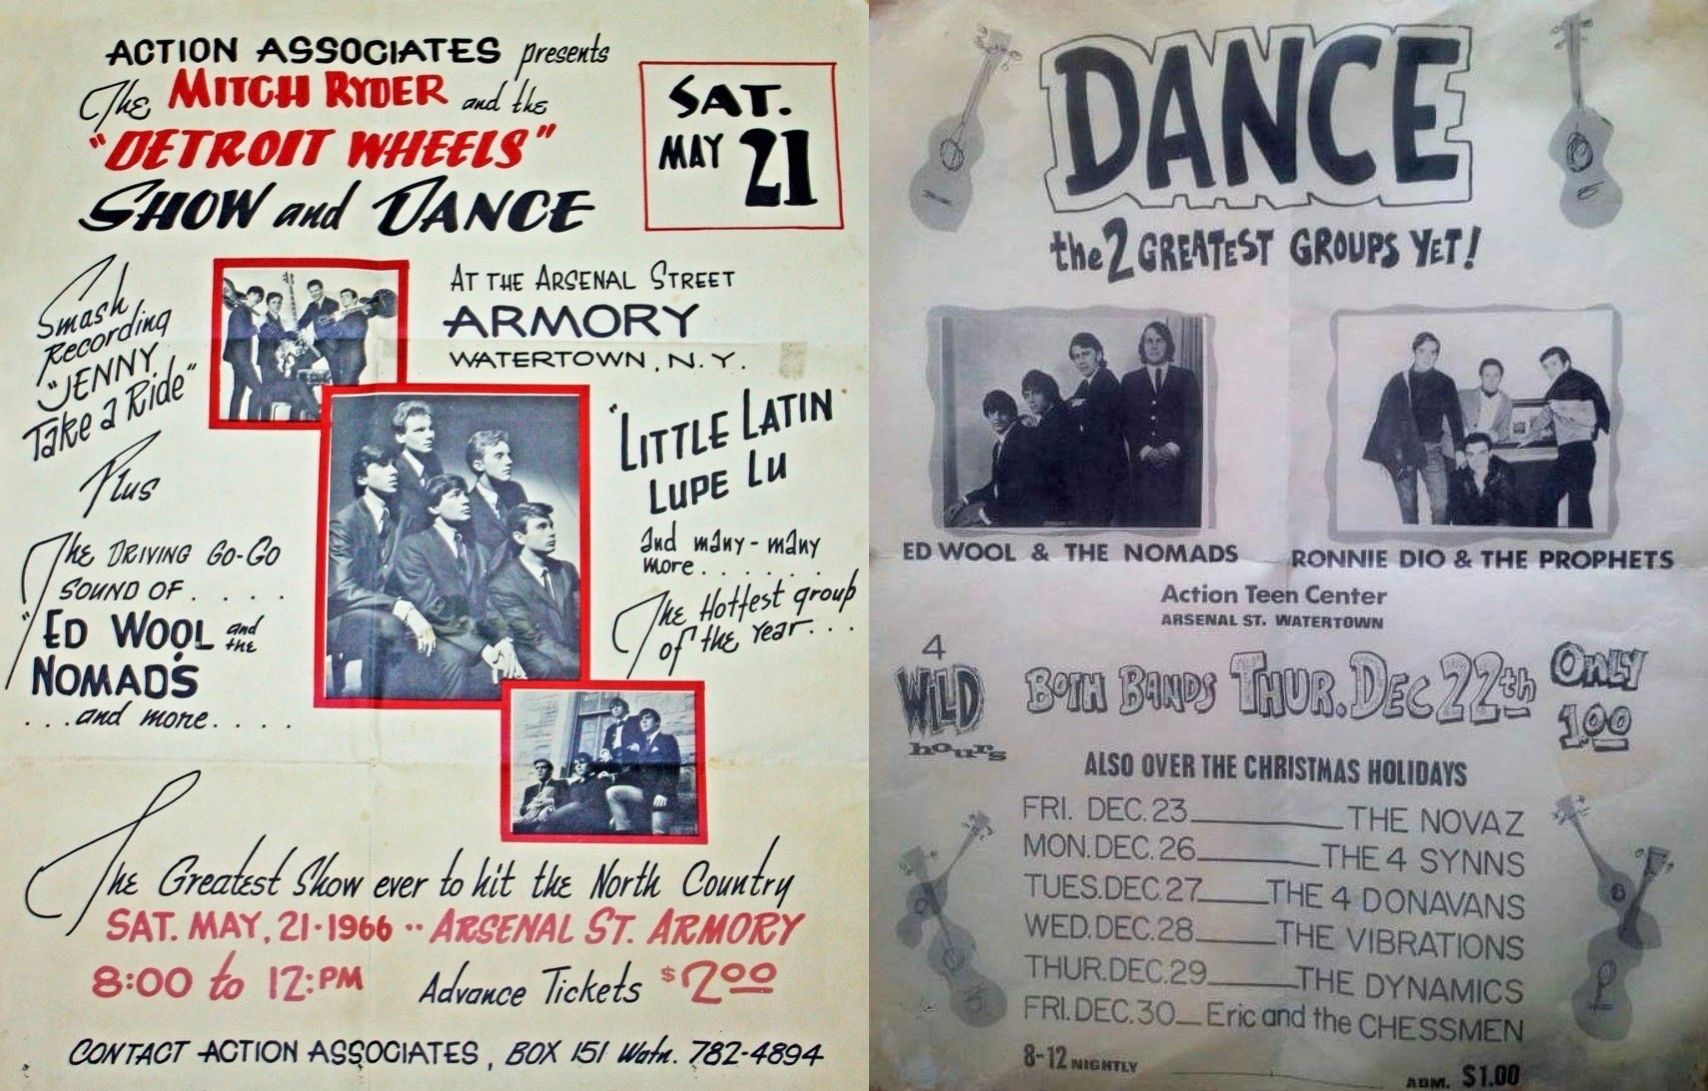 ACTION ASSOCIATES presents
The MITCH RYDER and the
"DETROIT WHEELS"
SHOW and DANCE
SAT.
MAY 21
Smash
Recording
"JENNY
Take a Ride"
Plus
The DRIVING GO-GO
SOUND OF . . . .
"ED WOOL and the
NOMAD'S
. . . and more. . . .
AT THE ARSENAL STREET
ARMORY
WATERTOWN, N.Y.
"LITTLE LATIN
LUPE LU
and many-many
more . . . . . . .
The Hottest group
of the year. . .
The Greatest Show ever to hit the North Country
SAT. MAY, 21-1966 .. ARSENAL ST. ARMORY
8:00 to 12:PM Advance Tickets $2.00
CONTACT ACTION ASSOCIATES, BOX 151 Watn. 782-4894
DANCE
the 2 GREATEST GROUPS YET!
ED WOOL & THE NOMADS
RONNIE DIO & THE PROPHETS
Action Teen Center
ARSENAL ST. WATERTOWN
4
WILD
hours
BOTH BANDS THUR. DEC 22th
ONLY
1.00
ALSO OVER THE CHRISTMAS HOLIDAYS
FRI. DEC. 23______THE NOVAZ
MON. DEC. 26______THE 4 SYNNS
TUES. DEC. 27____THE 4 DONAVANS
WED. DEC. 28____THE VIBRATIONS
THUR. DEC. 29____THE DYNAMICS
FRI. DEC. 30__Eric and the CHESSMEN
8-12 NIGHTLY ADM. $1.00